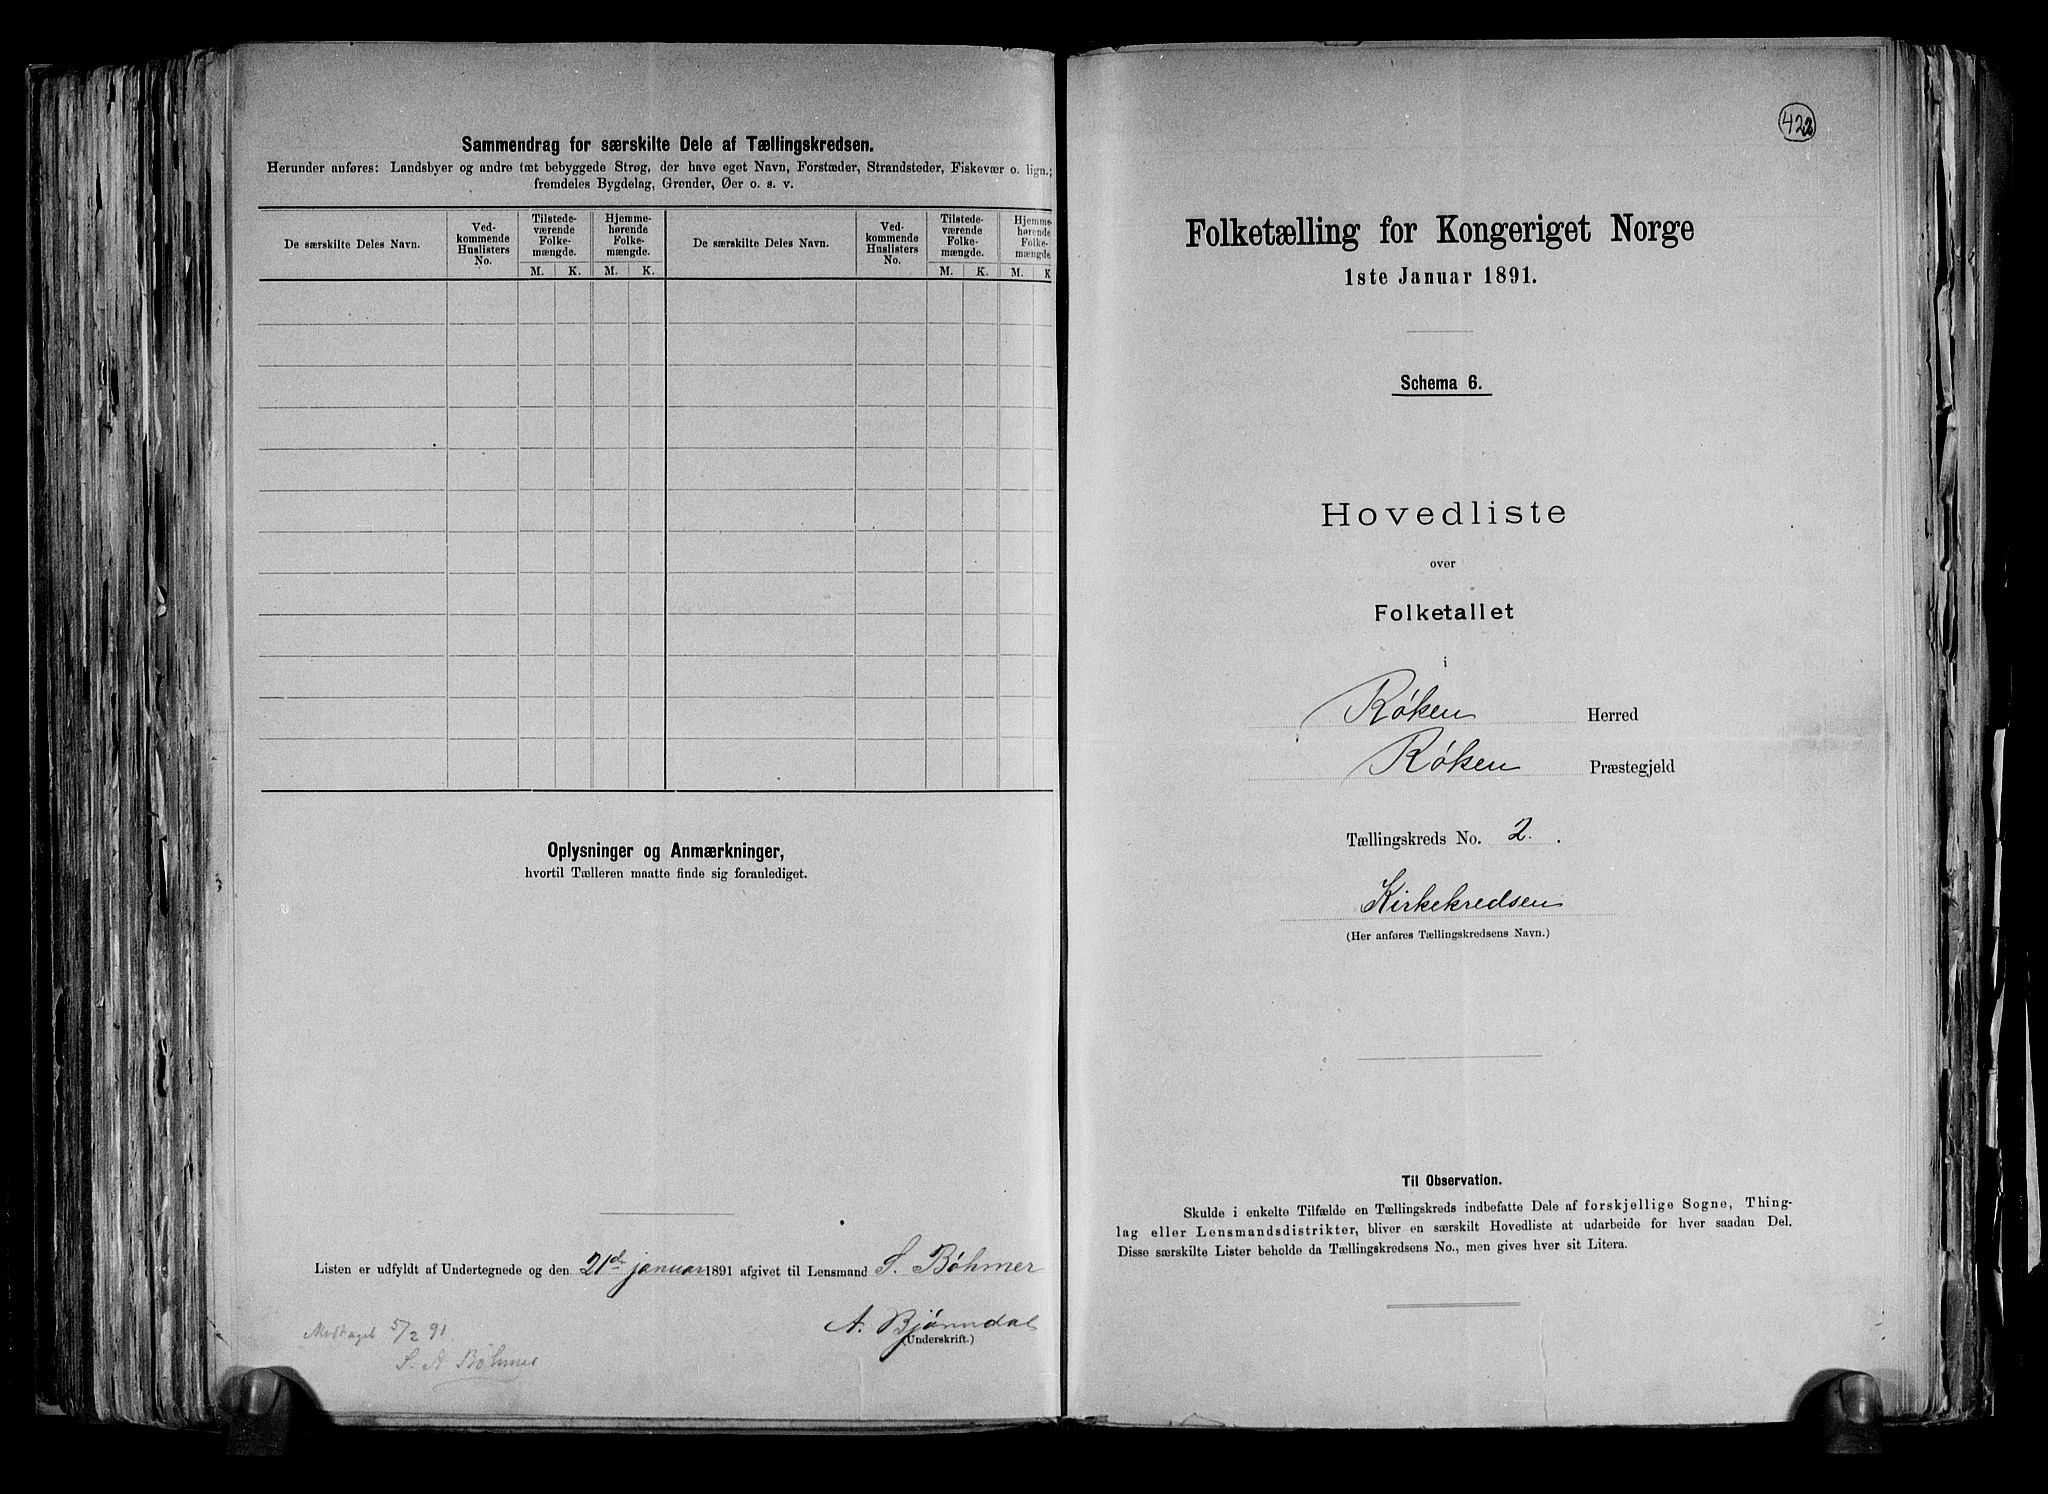 Sammendrag for særskilte Dele af Tællingskredsen.
Herunder anføres: Landsbyer og andre tæt bebyggede Strøg, der have eget Navn, Forstæder, Strandsteder, Fiskevær o. lign.;
fremdeles Bygdelag, Grender, Øer o. s. v.
De særskilte Deles Navn.
Ved-
kommende
Huslisters
No.
Tilstede-
værende
Folke-
mængde.
Hjemme-
hørende
Folke-
mængde.
M. K. M. K.
De særskilte Deles Navn.
Ved-
kommende
Huslisters
No.
Tilstede-
værende
Folke-
mængde.
Hjemme-
hørende
Folke-
mængde.
M. K. M. K
Oplysninger og Anmærkninger,
hvortil Tælleren maatte finde sig foranlediget.
Listen er udfyldt af Undertegnede og den 21de januar 1891 afgivet til Lensmand S. Bøhmer
A. Bjørndal
(Underskrift.)
Modtaget 5/2 91.
S. A Bøhmer
422
Folketælling for Kongeriget Norge
1ste Januar 1891.
Schema 6.
Hovedliste
over
Folketallet
i
Røken Herred
Røken Præstegjeld
Tællingskreds No. 2.
Kirkekredsen
(Her anføres Tællingskredsens Navn.)
Til Observation.
Skulde i enkelte Tilfælde en Tællingskreds indbefatte Dele af forskjellige Sogne, Thing-
lag eller Lensmandsdistrikter, bliver en særskilt Hovedliste at udarbeide for hver saadan Del.
Disse særskilte Lister beholde da Tællingskredsens No., men gives hver sit Litera.